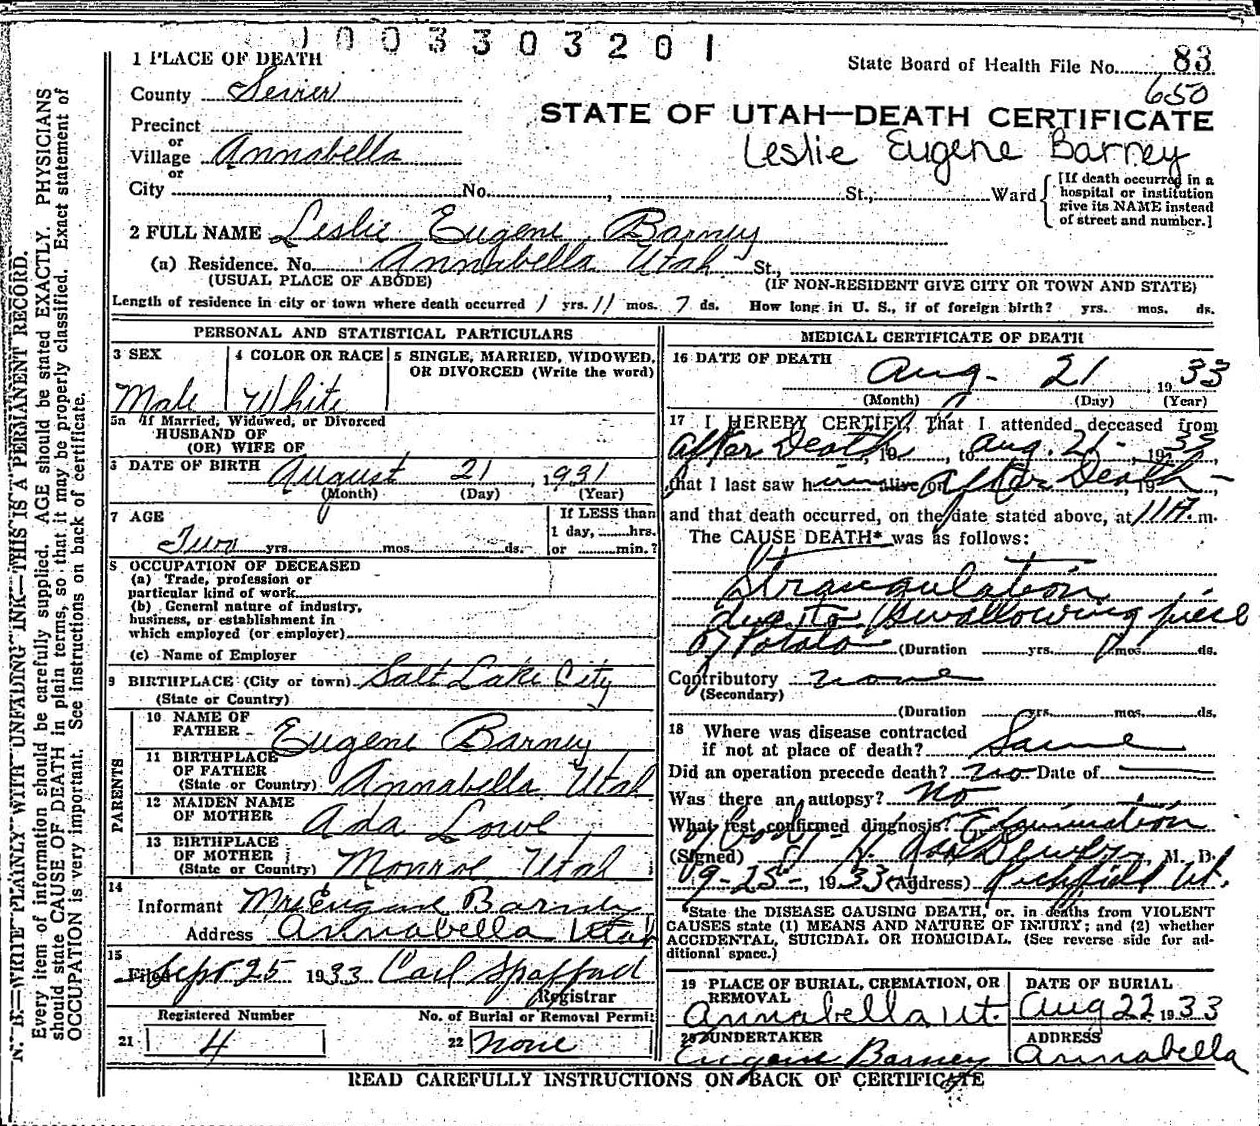 1003303201
1 PLACE OF DEATH
State Board of Health File No. 83
650
County Sevier
STATE OF UTAH—DEATH CERTIFICATE
Precinct
or
Village Annabella
Leslie Eugene Barney
or
City No. , St., Ward
[If death occurred in a
hospital or institution
give its NAME instead
of street and number.]
2 FULL NAME Leslie Eugene Barney
(a) Residence. No. Annabella Utah St.,
(USUAL PLACE OF ABODE) (IF NON-RESIDENT GIVE CITY OR TOWN AND STATE)
Length of residence in city or town where death occurred 1 yrs. 11 mos. 7 ds. How long in U. S., if of foreign birth? yrs. mos. ds.
PERSONAL AND STATISTICAL PARTICULARS
3 SEX
Male
4 COLOR OR RACE
White
5 SINGLE, MARRIED, WIDOWED,
OR DIVORCED (Write the word)
5a If Married, Widowed, or Divorced
HUSBAND OF
(OR) WIFE OF
6 DATE OF BIRTH August 21, 1931
(Month) (Day) (Year)
7 AGE
Two yrs. mos. ds.
If LESS than
1 day, hrs.
or min.?
8 OCCUPATION OF DECEASED
(a) Trade, profession or
particular kind of work
(b) General nature of industry,
business, or establishment in
which employed (or employer)
(c) Name of Employer
9 BIRTHPLACE (City or town) Salt Lake City
(State or Country)
PARENTS
10 NAME OF
FATHER Eugene Barney
11 BIRTHPLACE
OF FATHER
(State or Country) Annabella Utah
12 MAIDEN NAME
OF MOTHER Ada Lowe
13 BIRTHPLACE
OF MOTHER
(State or Country) Monroe Utah
14
Informant Mrs Eugene Barney
Address Annabella Utah
15
Filed Sept 25 1933 Carl Spafford
Registrar
Registered Number No. of Burial or Removal Permit
21 4 22 none
MEDICAL CERTIFICATE OF DEATH
16 DATE OF DEATH Aug- 21, 1933
(Month) (Day) (Year)
17 I HEREBY CERTIFY, That I attended deceased from
after Death, 19 , to aug. 21-, 1933
that I last saw him alive on after Death, 19 -
and that death occurred, on the date stated above, at 11 A. m.
The CAUSE DEATH* was as follows:
Strangulation
due to swallowing piece
of Potato (Duration yrs. mos. ds.
Contributory none
(Secondary)
(Duration yrs. mos. ds.
18 Where was disease contracted
if not at place of death? Same
Did an operation precede death? no Date of —
Was there an autopsy? no
What test confirmed diagnosis? Examination
of body
(Signed) M. D.
9-25-, 1933 (Address) Richfield Ut.
*State the DISEASE CAUSING DEATH, or, in deaths from VIOLENT
CAUSES state (1) MEANS AND NATURE OF INJURY; and (2) whether
ACCIDENTAL, SUICIDAL OR HOMICIDAL. (See reverse side for ad-
ditional space.)
19 PLACE OF BURIAL, CREMATION, OR
REMOVAL
Annabella Ut.
DATE OF BURIAL
Aug 22 1933
20 UNDERTAKER
Eugene Barney
ADDRESS
Annabella
READ CAREFULLY INSTRUCTIONS ON BACK OF CERTIFICATE
N. B.—WRITE PLAINLY WITH UNFADING INK—THIS IS A PERMANENT RECORD.
Every item of information should be carefully supplied. AGE should be stated EXACTLY. PHYSICIANS
should state CAUSE OF DEATH in plain terms, so that it may be properly classified. Exact statement of
OCCUPATION is very important. See instructions on back of certificate.